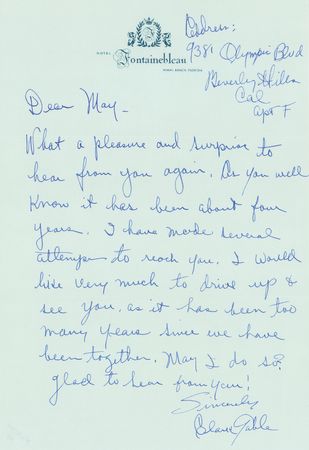 Address:
HOTEL
Fontainebleau
MIAMI BEACH, FLORIDA
9381 Olympic Blvd
Beverly Hills
Cal
Apt F
Dear May -
What a pleasure and surprise to
hear from you again. As you well
know it has been about four
years. I have made several
attemps to reach you. I would
like very much to drive up &
see you, as it has been too
many years since we have
been together. May I do so?
glad to hear from you!
Sincerely
Gable